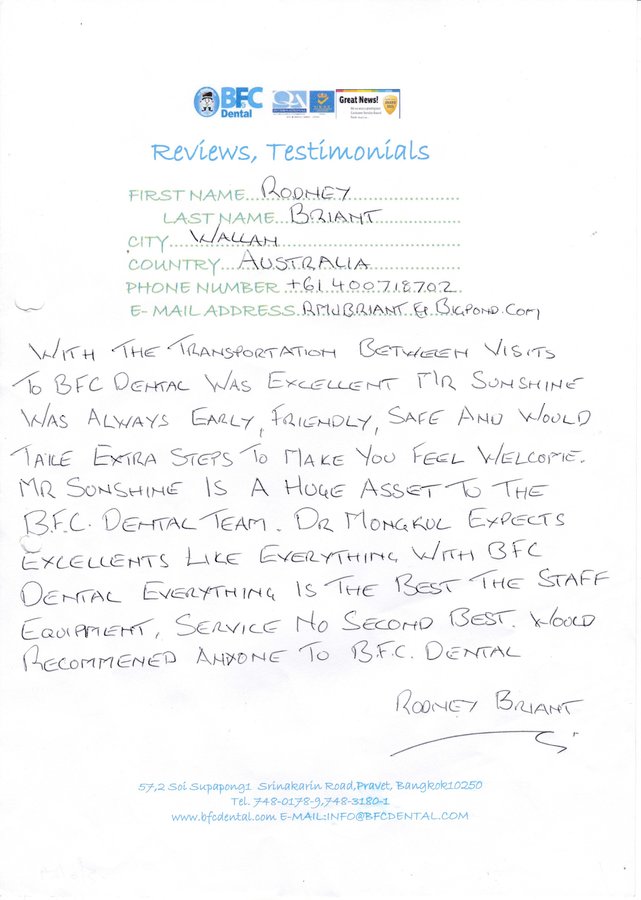 BFC
Dental
QA
Great News!
Reviews, Testimonials
FIRST NAME...RODNEY
LAST NAME...BRIANT
CITY...WALLAN
COUNTRY...AUSTRALIA
PHONE NUMBER...+61 400718702
E-MAIL ADDRESS.RMJBRIANT.@BIGPOND.COM
WITH THE TRANSPORTATION BETWEEN VISITS
TO BFC DENTAL WAS EXCELLENT MR SUNSHINE
WAS ALWAYS EARLY, FRIENDLY, SAFE AND WOULD
TAKE EXTRA STEPS TO MAKE YOU FEEL WELCOME.
MR SUNSHINE IS A HUGE ASSET TO THE
B.F.C. DENTAL TEAM. DR MONGKUL EXPECTS
EXCELLENTS LIKE EVERYTHING WITH BFC
DENTAL EVERYTHING IS THE BEST THE STAFF
EQUIPMENT, SERVICE NO SECOND BEST. WOULD
RECOMMENED ANYONE TO B.F.C. DENTAL
RODNEY BRIANT
57,2 Soi Supapong1 Srinakarin Road,Pravet, Bangkok10250
Tel. 748-0178-9,748-3180-1
www.bfcdental.com E-MAIL:INFO@BFCDENTAL.COM